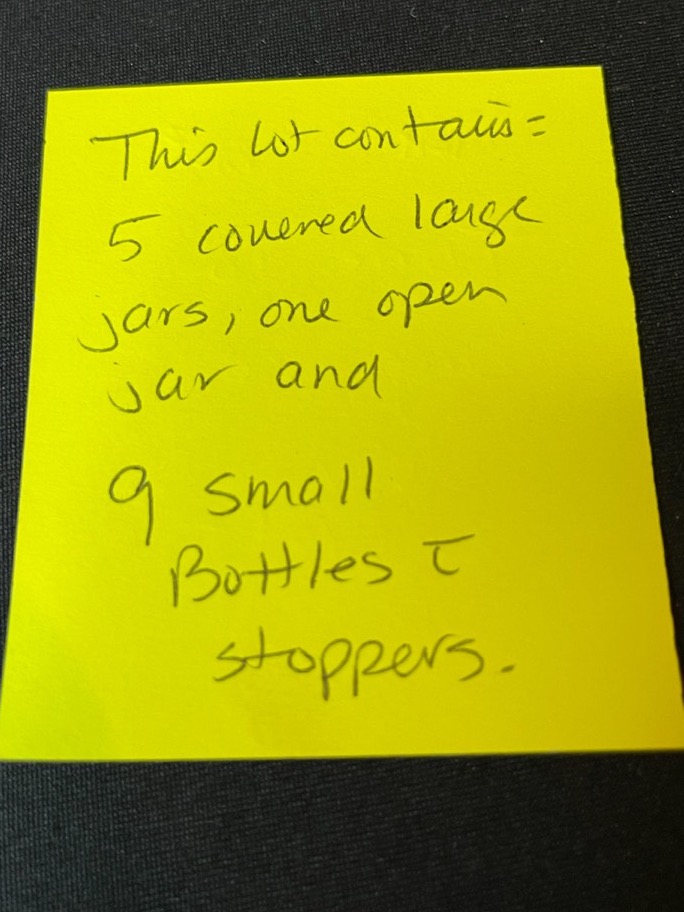 This lot contains=
5 covered large
jars, one open
jar and
9 small
Bottles c̄
stoppers.